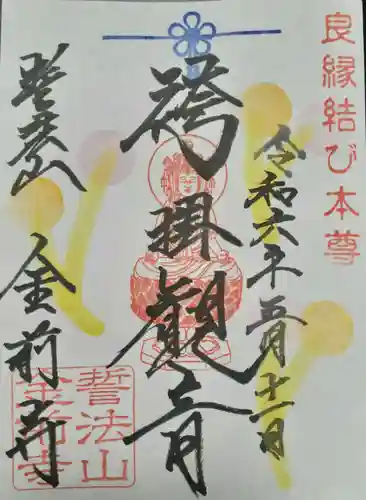 良縁結び本尊
令和六年五月十一日
袴掛観音
誓法山
金前寺
誓法山
金前寺